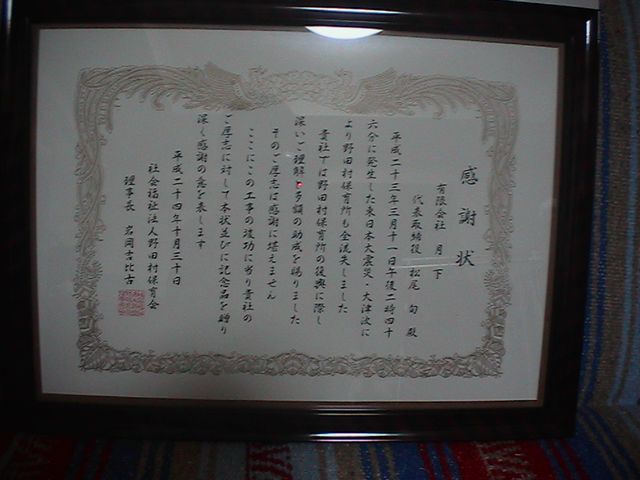 感謝状
有限会社 月下
代表取締役 松尾 匂 殿
平成二十三年三月十一日午後二時四十
六分に発生した東日本大震災・大津波に
より野田村保育所も全流失しました
貴社では野田村保育所の復興に際し
深いご理解と多額の助成を賜りました
そのご厚志は感謝に堪えません
ここにこの工事の竣功に当り貴社の
ご厚志に対して本状並びに記念品を贈り
深く感謝の意を表します
平成二十四年十月三十日
社会福祉法人野田村保育会
理事長 岩岡吉比古